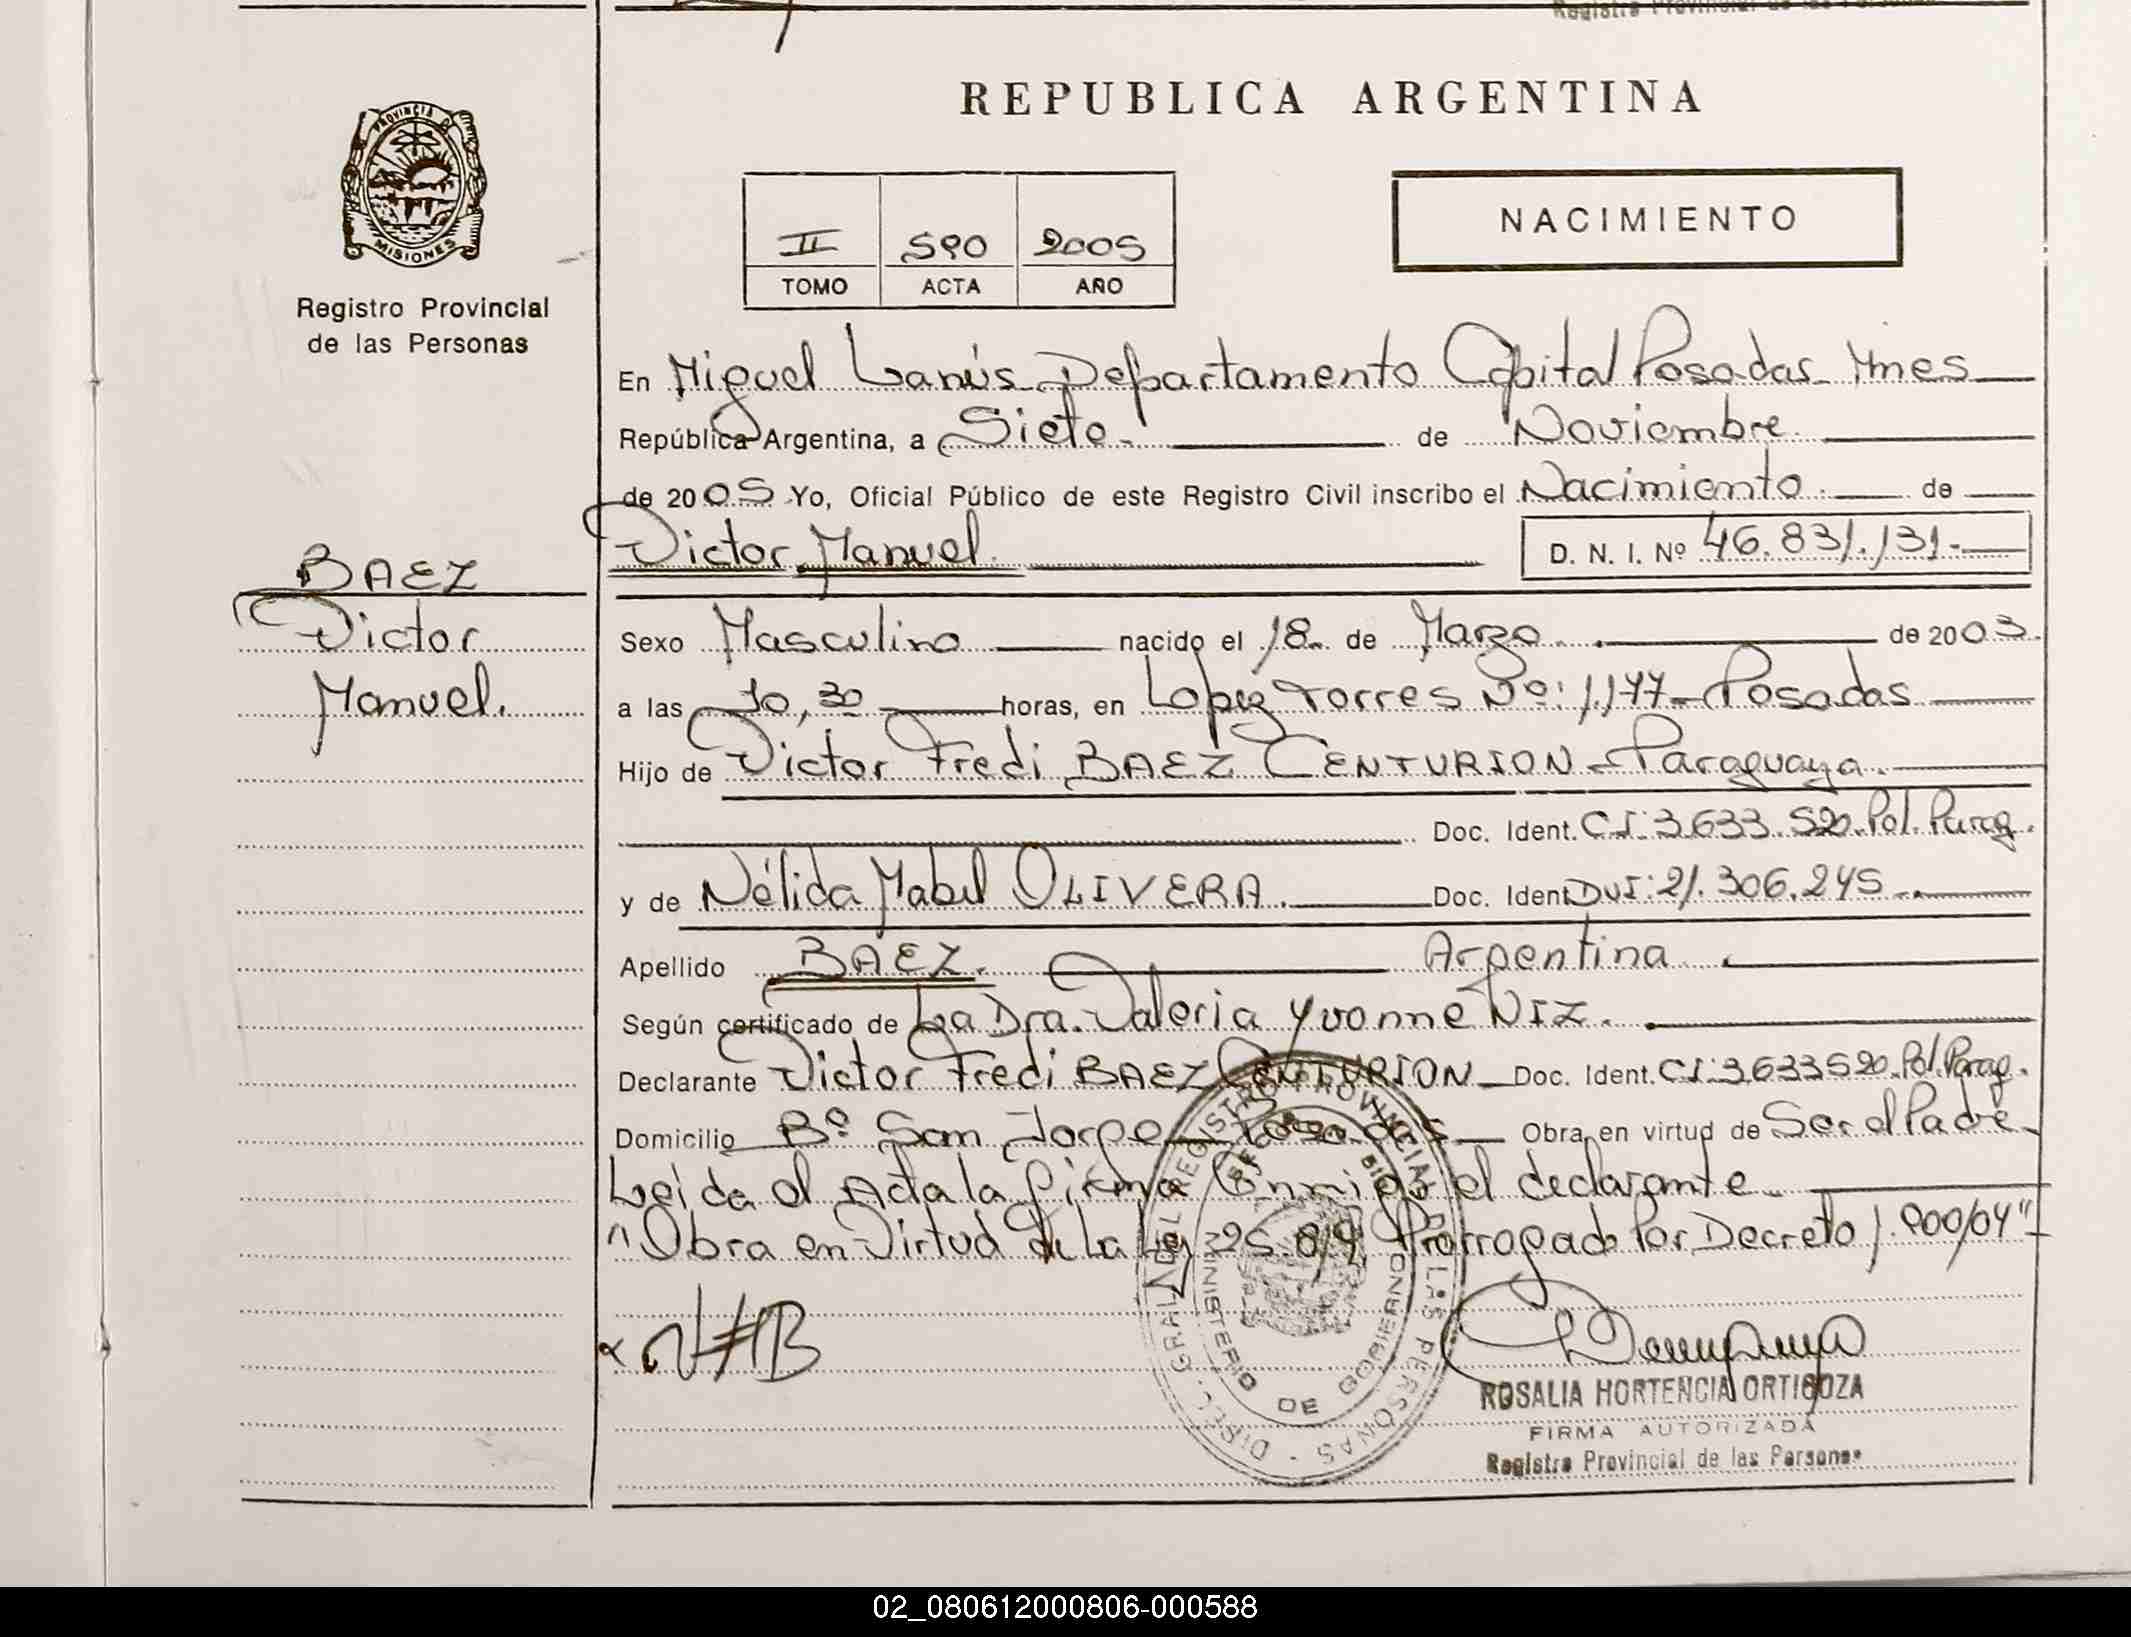 Registro Provincial de las Personas
REPUBLICA ARGENTINA
PROVINCIA D
MISIONES
Registro Provincial
de las Personas
II 590 2005
TOMO ACTA AÑO
NACIMIENTO
En Miguel Lanús Departamento Capital Posadas Mnes
República Argentina, a Siete. de Noviembre.
de 2005 Yo, Oficial Público de este Registro Civil inscribo el Nacimiento. de
Victor Manuel. D. N. I. Nº 46.831.131.-
BAEZ
Victor
Manuel.
Sexo Masculino nacido el 18. de Marzo. de 2003.
a las 10,30 horas, en Lopez Torres Nº: 1.177-Posadas
Hijo de Victor Fredi BAEZ CENTURION-Paraguaya.
Doc. Ident. CI:3.633.520.Pol.Parag.
y de Nélida Mabel OLIVERA. Doc. Ident DNI:21.306.245
Apellido BAEZ. Argentina.
Según certificado de La Dra. Valeria Yvonne NIZ.
Declarante Victor Fredi BAEZ CENTURION Doc. Ident. CI:3633520.Pol.Parag.
Domicilio Bº San Jorge-Posadas Obra en virtud de Ser el Padre.
Leída el Acta la firma Conmigo el declarante.
"Obra en Virtud de La Ley 25.819 Prorrogado Por Decreto 1.900/04"-
DIREC. GRAL. DEL REGISTRO PROVINCIAL DE LAS PERSONAS
MINISTERIO DE GOBIERNO
ROSALIA HORTENCIA ORTIGOZA
FIRMA AUTORIZADA
Registro Provincial de las Personas
02_080612000806-000588